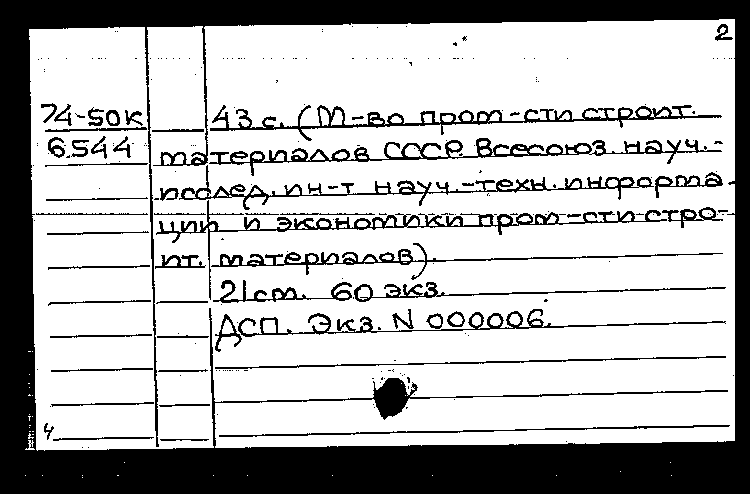 2
74-50к 43 с. (М-во пром-сти строит.
6544 материалов СССР. Всесоюз. науч.-
исслед. ин-т науч.-техн. информа-
ции и экономики пром-сти стро-
ит. материалов).
21 см. 60 экз.
ДСП. Экз. N 000006.
4